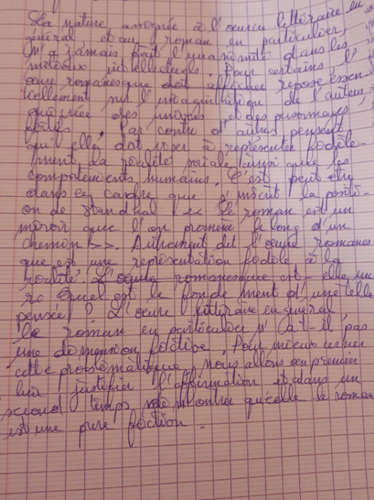 La nature assignée à l'œuvre littéraire en
général et au roman en particulier,
n'a jamais fait l'unanimité dans les
milieux intellectuels. Pour certains l'
œuvre romanesque doit reposer essen
tiellement sur l'imagination de l'auteur
des univers et des personnages
fictifs. Par contre d'autres pensent
qu'elle doit viser à représenter fidèle-
ment la réalité sociale ainsi que les
comportements humains. C'est peut être
dans ce cadre que s'inscrit la positi-
on de Stendhal : << Le roman est un
miroir que l'on promène le long d'un
chemin >>. Autrement dit l'œuvre romanes
que est une représentation fidèle à la
réalité. L'œuvre romanesque est-elle
Quel est le fondement d'une telle
pensée ? L'œuvre littéraire en général,
le roman en particulier n'a t-il pas
une dimension fictive. Pour mieux
cette problématique, nous allons en premier
lieu justifier l'affirmation et dans un
second temps montrer qu'elle le roman
est une pure fiction.